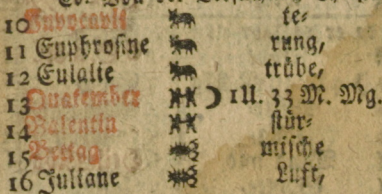 10 Invocavit te-
11 Euphrosine rung,
12 Eulalie trübe,
13 Quatember ☽ 1U. 33 M. Mg.
14 Valentin stür-
15 mische
16 Juliane Luft,